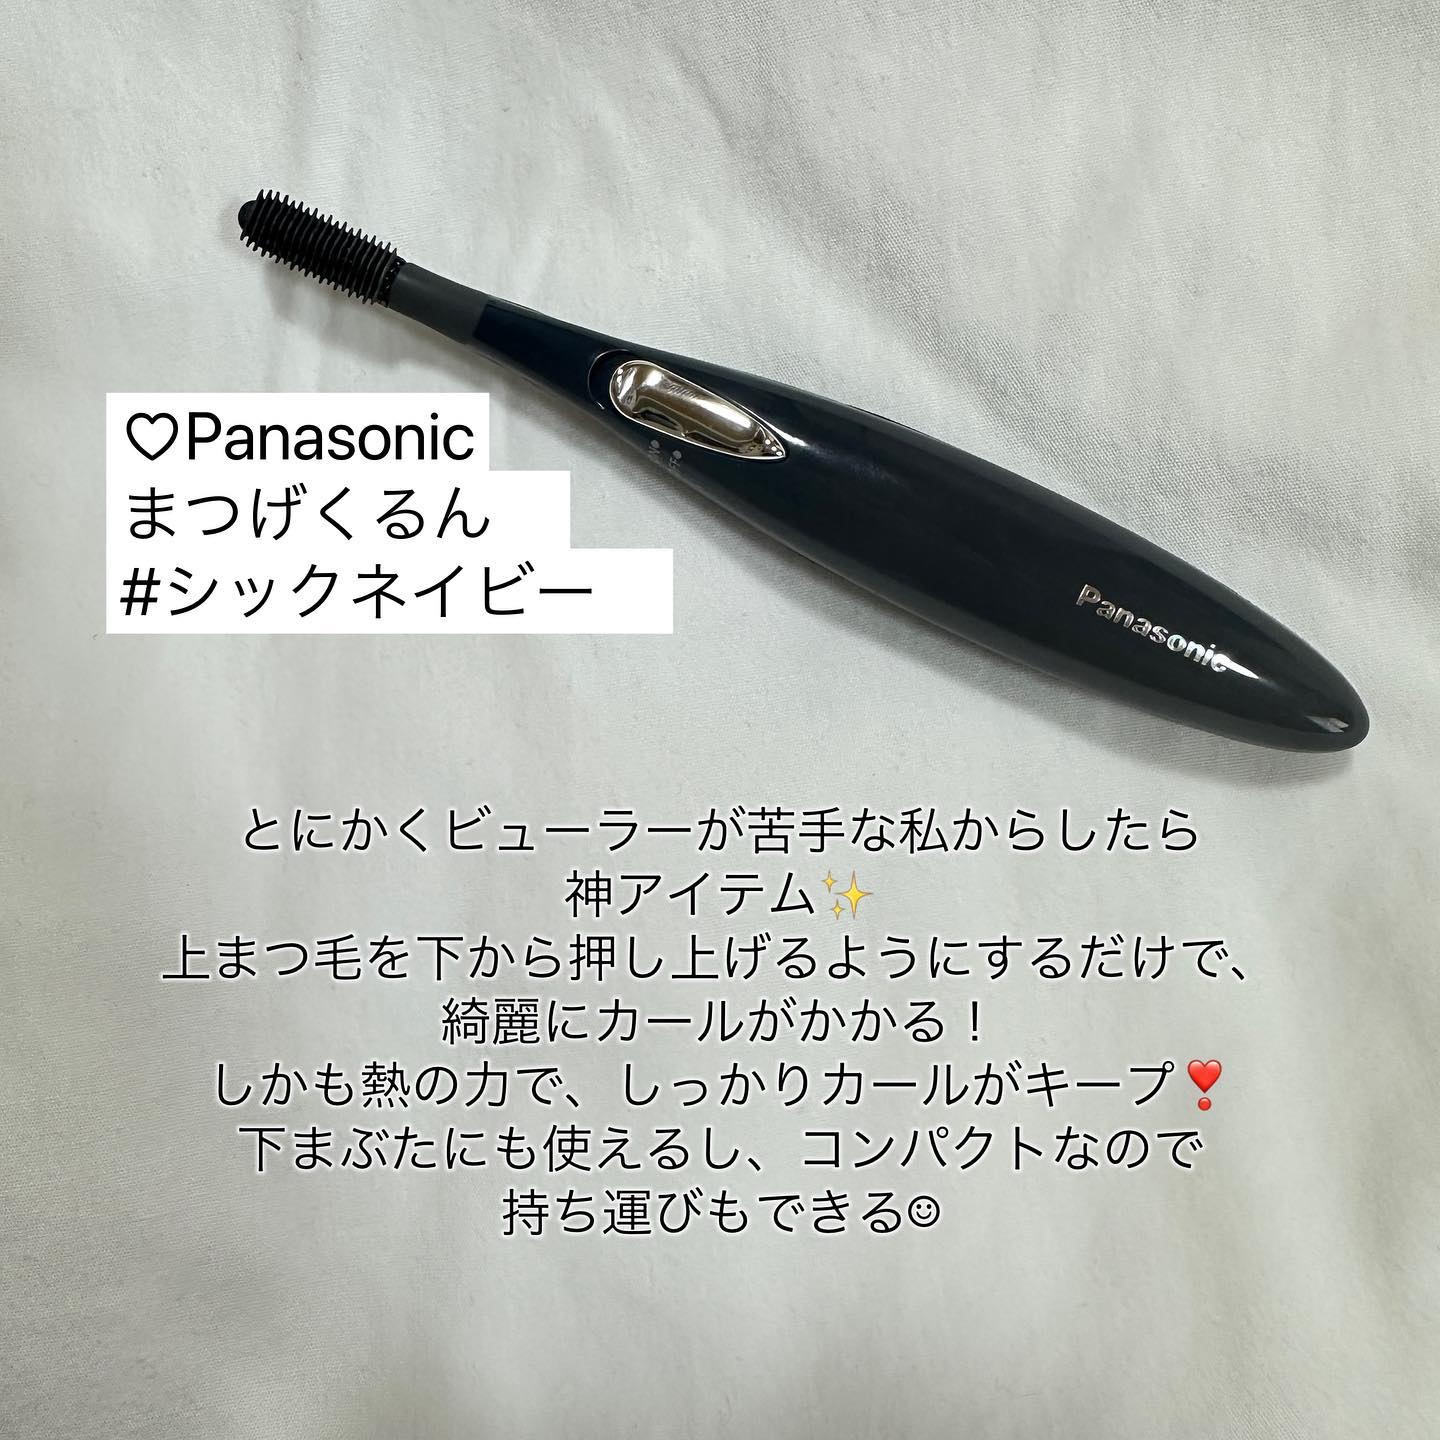 ♡Panasonic
まつげくるん
#シックネイビー
Panasonic
とにかくビューラーが苦手な私からしたら
神アイテム✨
上まつ毛を下から押し上げるようにするだけで、
綺麗にカールがかかる！
しかも熱の力で、しっかりカールがキープ❣️
下まぶたにも使えるし、コンパクトなので
持ち運びもできる☺